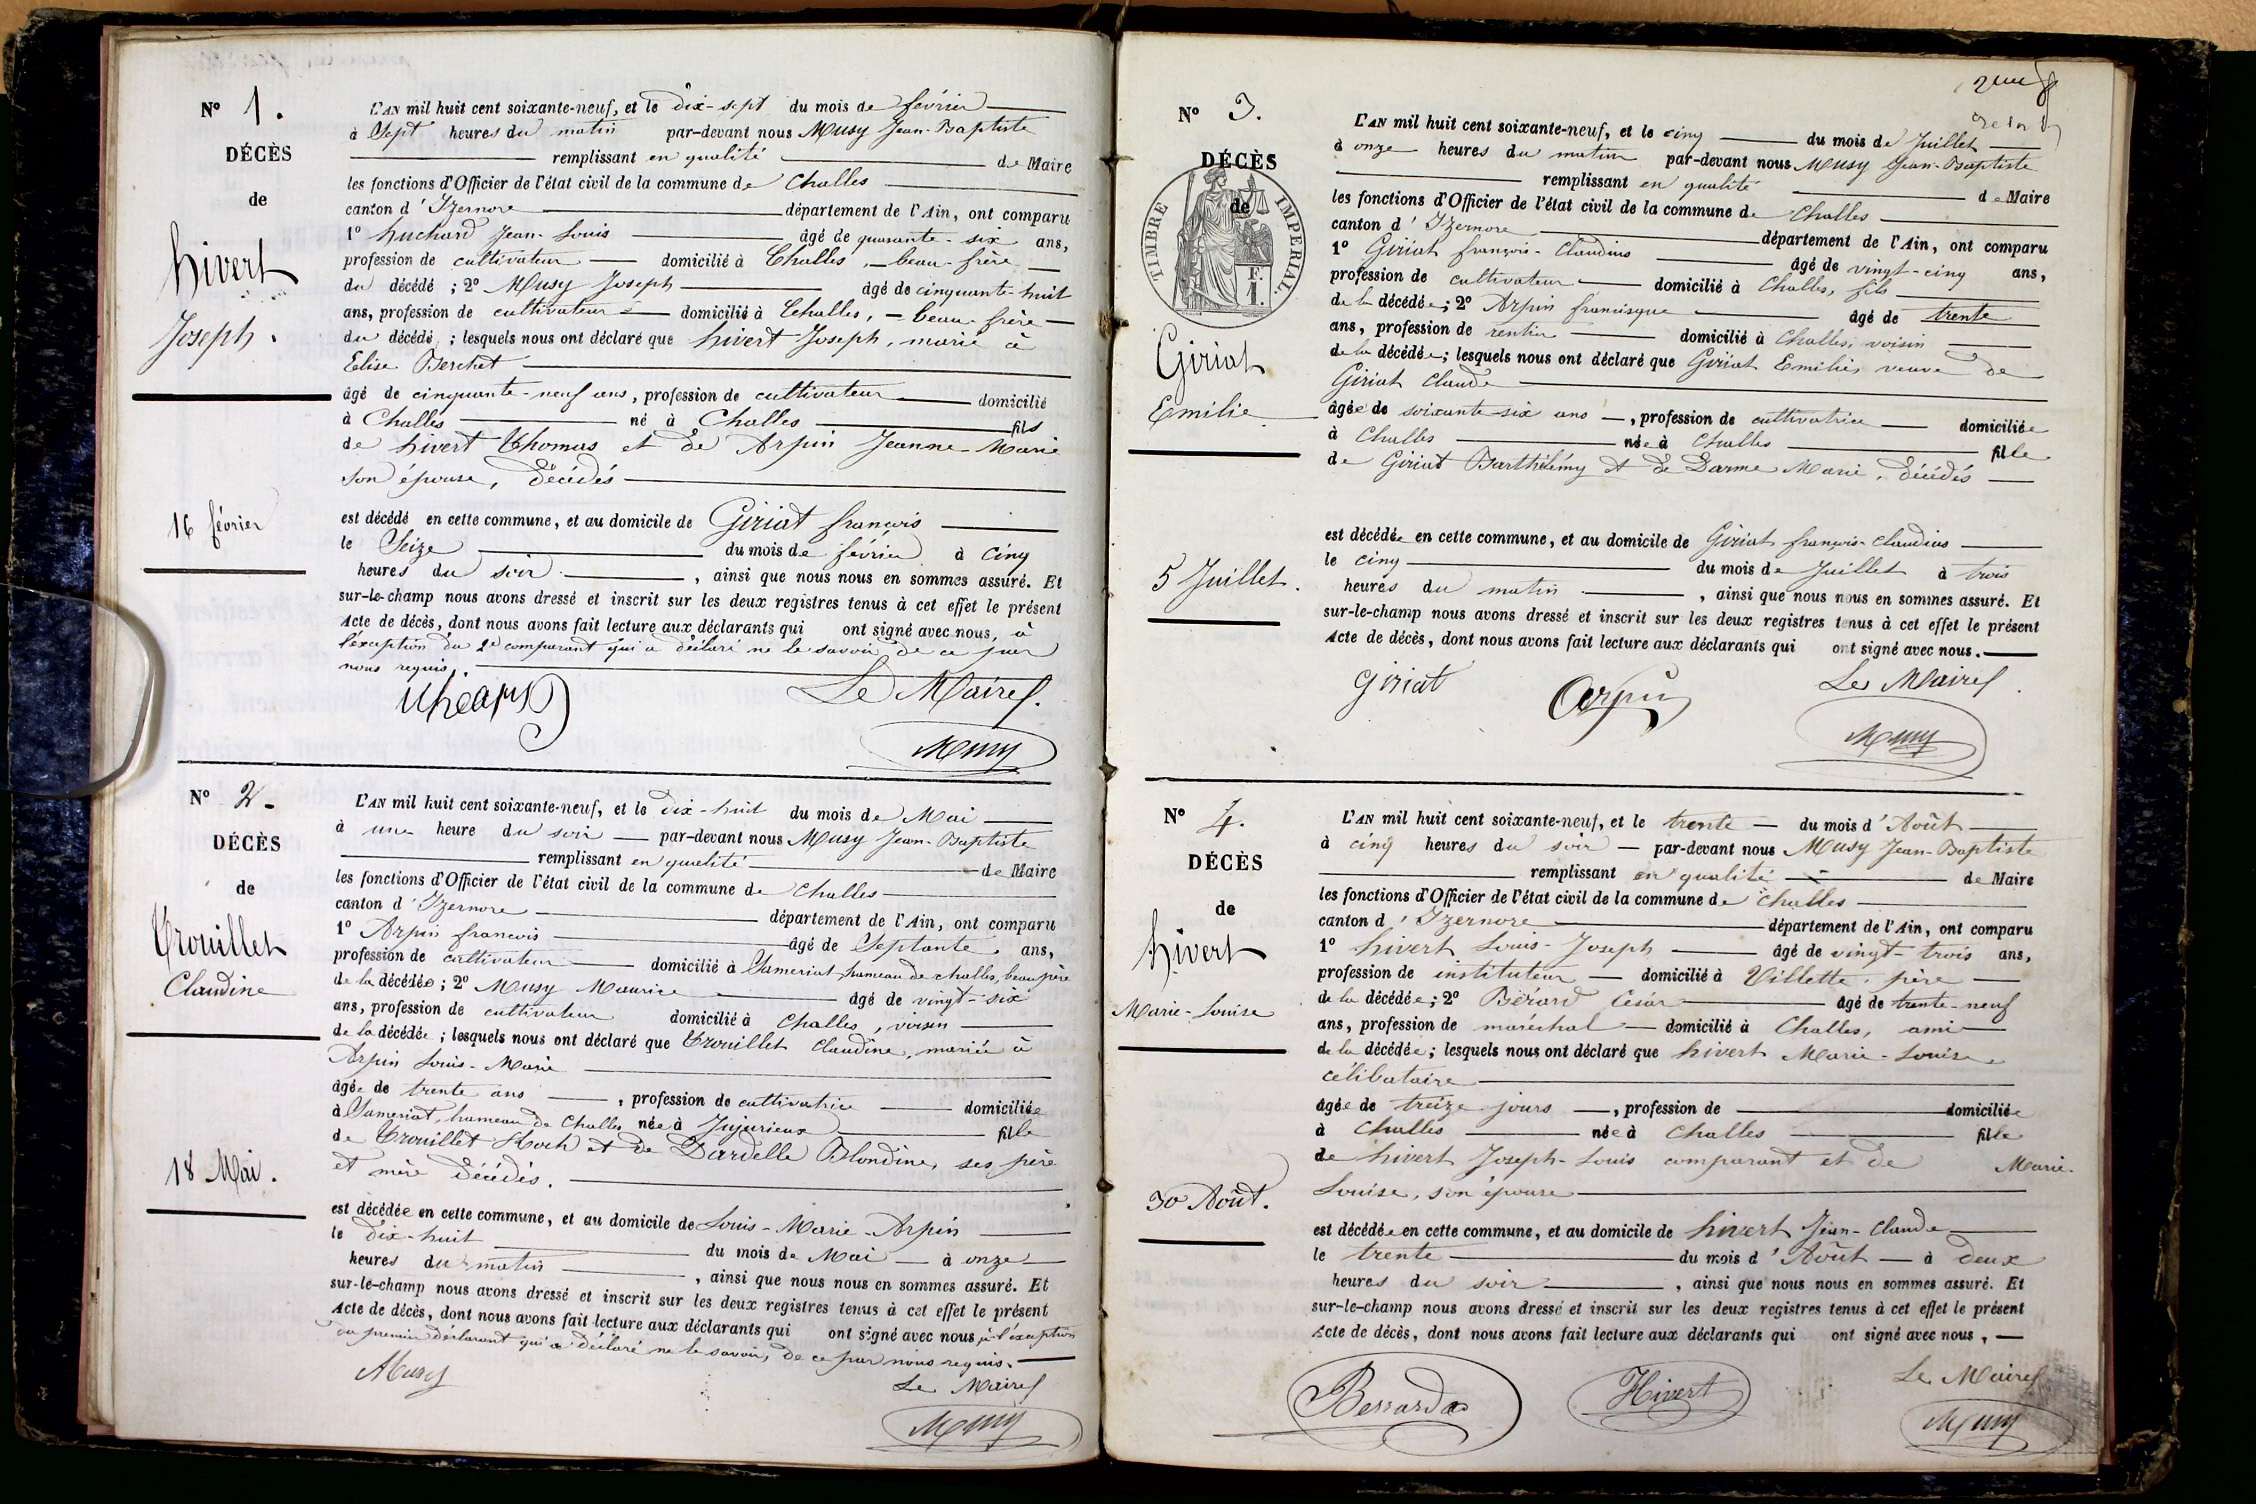 N° 1.
DÉCÈS
de
hivert
Joseph.
16 février
L'AN mil huit cent soixante-neuf, et le dix-sept du mois de février
à Sept heures du matin par-devant nous Musy Jean-Baptiste
remplissant en qualité de Maire
les fonctions d'Officier de l'état civil de la commune de Challes
canton d'Izernore département de l'Ain, ont comparu
1° huchard Jean-Louis âgé de quarante-six ans,
profession de cultivateur domicilié à Challes, beau-frère
du décédé; 2° Musy Joseph âgé de cinquante-huit
ans, profession de cultivateur domicilié à Challes, beau-frère
du décédé; lesquels nous ont déclaré que hivert Joseph, marié à
Elise Berchet
âgé de cinquante-neuf ans, profession de cultivateur domicilié
à Challes né à Challes fils
de hivert Thomas et de Arpin Jeanne-Marie
son épouse, décédés
est décédé en cette commune, et au domicile de Giriat françois
le Seize du mois de février à cinq
heures du soir, ainsi que nous nous en sommes assuré. Et
sur-le-champ nous avons dressé et inscrit sur les deux registres tenus à cet effet le présent
Acte de décès, dont nous avons fait lecture aux déclarants qui ont signé avec nous, à
l'éxception du 2d comparant qui a déclaré ne le savoir de ce par
nous requis.
Le Maire
Musy
N° 2.
DÉCÈS
de
Trouillet
Claudine
18 Mai.
L'AN mil huit cent soixante-neuf, et le dix-huit du mois de Mai
à une heure du soir par-devant nous Musy Jean-Baptiste
remplissant en qualité de Maire
les fonctions d'Officier de l'état civil de la commune de Challes
canton d'Izernore département de l'Ain, ont comparu
1° Arpin francois âgé de Septante ans,
profession de cultivateur domicilié à Sameriat hameau de challes, beau père
de la décédée; 2° Musy Maurice âgé de vingt-six
ans, profession de cultivateur domicilié à Challes, voisin
de la décédée; lesquels nous ont déclaré que Trouillet Claudine, mariée à
Arpin Louis-Marie
âgée de trente ans, profession de cultivatrice domiciliée
à Sameriat, hameau de Challes née à Jujurieux fille
de Trouillet Roch et de Dardelle Blondine, ses père
et mère décédés.
est décédée en cette commune, et au domicile de Louis-Marie Arpin
le dix-huit du mois de Mai à onze
heures du matin, ainsi que nous nous en sommes assuré. Et
sur-le-champ nous avons dressé et inscrit sur les deux registres tenus à cet effet le présent
Acte de décès, dont nous avons fait lecture aux déclarants qui ont signé avec nous, à l'éxception
du premier déclarant qui a déclaré ne le savoir, de ce par nous requis.
Musy
Le Maire
Musy
N° 3.
DÉCÈS
de
TIMBRE IMPERIAL.
F.
1.
Giriat
Emilie
5 Juillet.
L'AN mil huit cent soixante-neuf, et le cinq du mois de Juillet
à onze heures du matin par-devant nous Musy Jean-Baptiste
remplissant en qualité de Maire
les fonctions d'Officier de l'état civil de la commune de Challes
canton d'Izernore département de l'Ain, ont comparu
1° Giriat françois-Claudius âgé de vingt-cinq ans,
profession de cultivateur domicilié à Challes, fils
de la décédée; 2° Arpin francisque âgé de trente
ans, profession de rentier domicilié à Challes, voisin
de la décédée; lesquels nous ont déclaré que Giriat Emilie, veuve de
Giriat Claude
âgée de soixante-six ans, profession de cultivatrice domiciliée
à Challes née à Challes fille
de Giriat Barthélémy et de Darme Marie, décédés
est décédée en cette commune, et au domicile de Giriat françois-Claudius
le cinq du mois de Juillet à trois
heures du matin, ainsi que nous nous en sommes assuré. Et
sur-le-champ nous avons dressé et inscrit sur les deux registres tenus à cet effet le présent
Acte de décès, dont nous avons fait lecture aux déclarants qui ont signé avec nous.
Giriat
Arpin
Le Maire
Musy
N° 4.
DÉCÈS
de
hivert
Marie-Louise
30 Août.
L'AN mil huit cent soixante-neuf, et le trente du mois d'Août
à cinq heures du soir par-devant nous Musy Jean-Baptiste
remplissant en qualité de Maire
les fonctions d'Officier de l'état civil de la commune de Challes
canton d'Izernore département de l'Ain, ont comparu
1° hivert Louis-Joseph âgé de vingt-trois ans,
profession de instituteur domicilié à Villette, père
de la décédée; 2° Bérard César âgé de trente-neuf
ans, profession de maréchal domicilié à Challes, ami
de la décédée; lesquels nous ont déclaré que hivert Marie-Louise
célibataire
âgée de treize jours, profession de domiciliée
à Challes née à Challes fille
de hivert Joseph-Louis comparant et de Marie-
Louise, son épouse
est décédée en cette commune, et au domicile de hivert Jean-Claude
le trente du mois d'Août à deux
heures du soir, ainsi que nous nous en sommes assuré. Et
sur-le-champ nous avons dressé et inscrit sur les deux registres tenus à cet effet le présent
Acte de décès, dont nous avons fait lecture aux déclarants qui ont signé avec nous,
Hivert
Le Maire
Musy